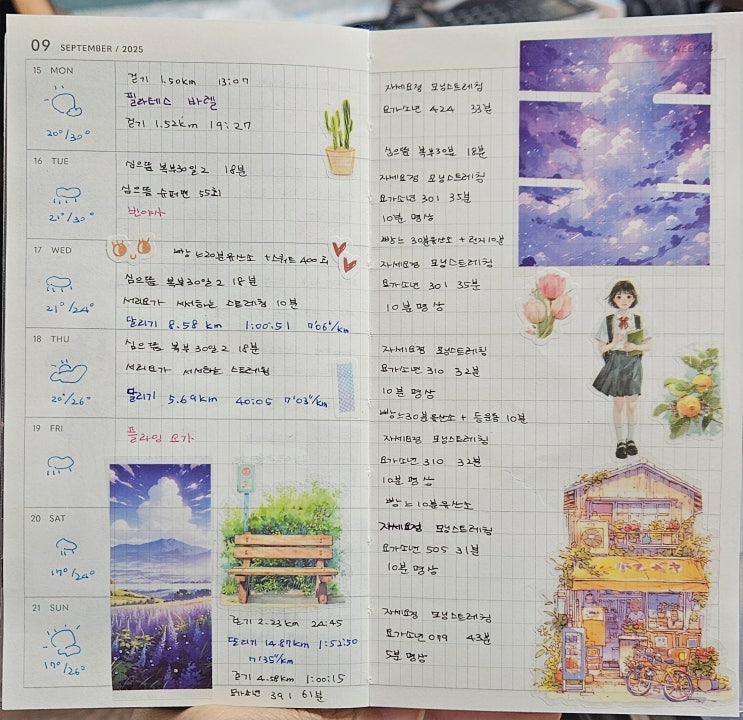 09 SEPTEMBER / 2025
15 MON
20°/30°
걷기 1.50km 13:07
필라테스 바렐
걷기 1.52km 19:27
16 TUE
21°/30°
심으뜸 복부30일2 18분
심으뜸 슈퍼맨 55회
빈야사
17 WED
21°/24°
빵느20분유산소 +스쿼트 400회
심으뜸 복부30일2 18분
서리요가 서서하는 스트레칭 10분
달리기 8.58 km 1:00:51 7'06"/km
18 THU
20°/26°
심으뜸 복부30일2 18분
서리요가 서서하는 스트레칭
달리기 5.69km 40:05 7'03"/km
19 FRI
플라잉 요가
20 SAT
17°/24°
21 SUN
17°/26°
걷기 2.23km 24:45
달리기 14.87km 1:52:50
7'35"/km
걷기 4.58km 1:00:15
요가소년 391 61분
WEEK 38
자세요정 모닝스트레칭
요가소년 424 33분
심으뜸 복부30분 18분
자세요정 모닝스트레칭
요가소년 301 35분
10분 명상
빵느 30분유산소 + 런지10분
자세요정 모닝스트레칭
요가소년 301 35분
10분 명상
자세요정 모닝스트레칭
요가소년 310 32분
10분 명상
빵느30분유산소 + 등운동 10분
자세요정 모닝스트레칭
요가소년 310 32분
10분 명상
빵느 10분유산소
자세요정 모닝스트레칭
요가소년 505 31분
10분 명상
자세요정 모닝스트레칭
요가소년 099 43분
5분 명상